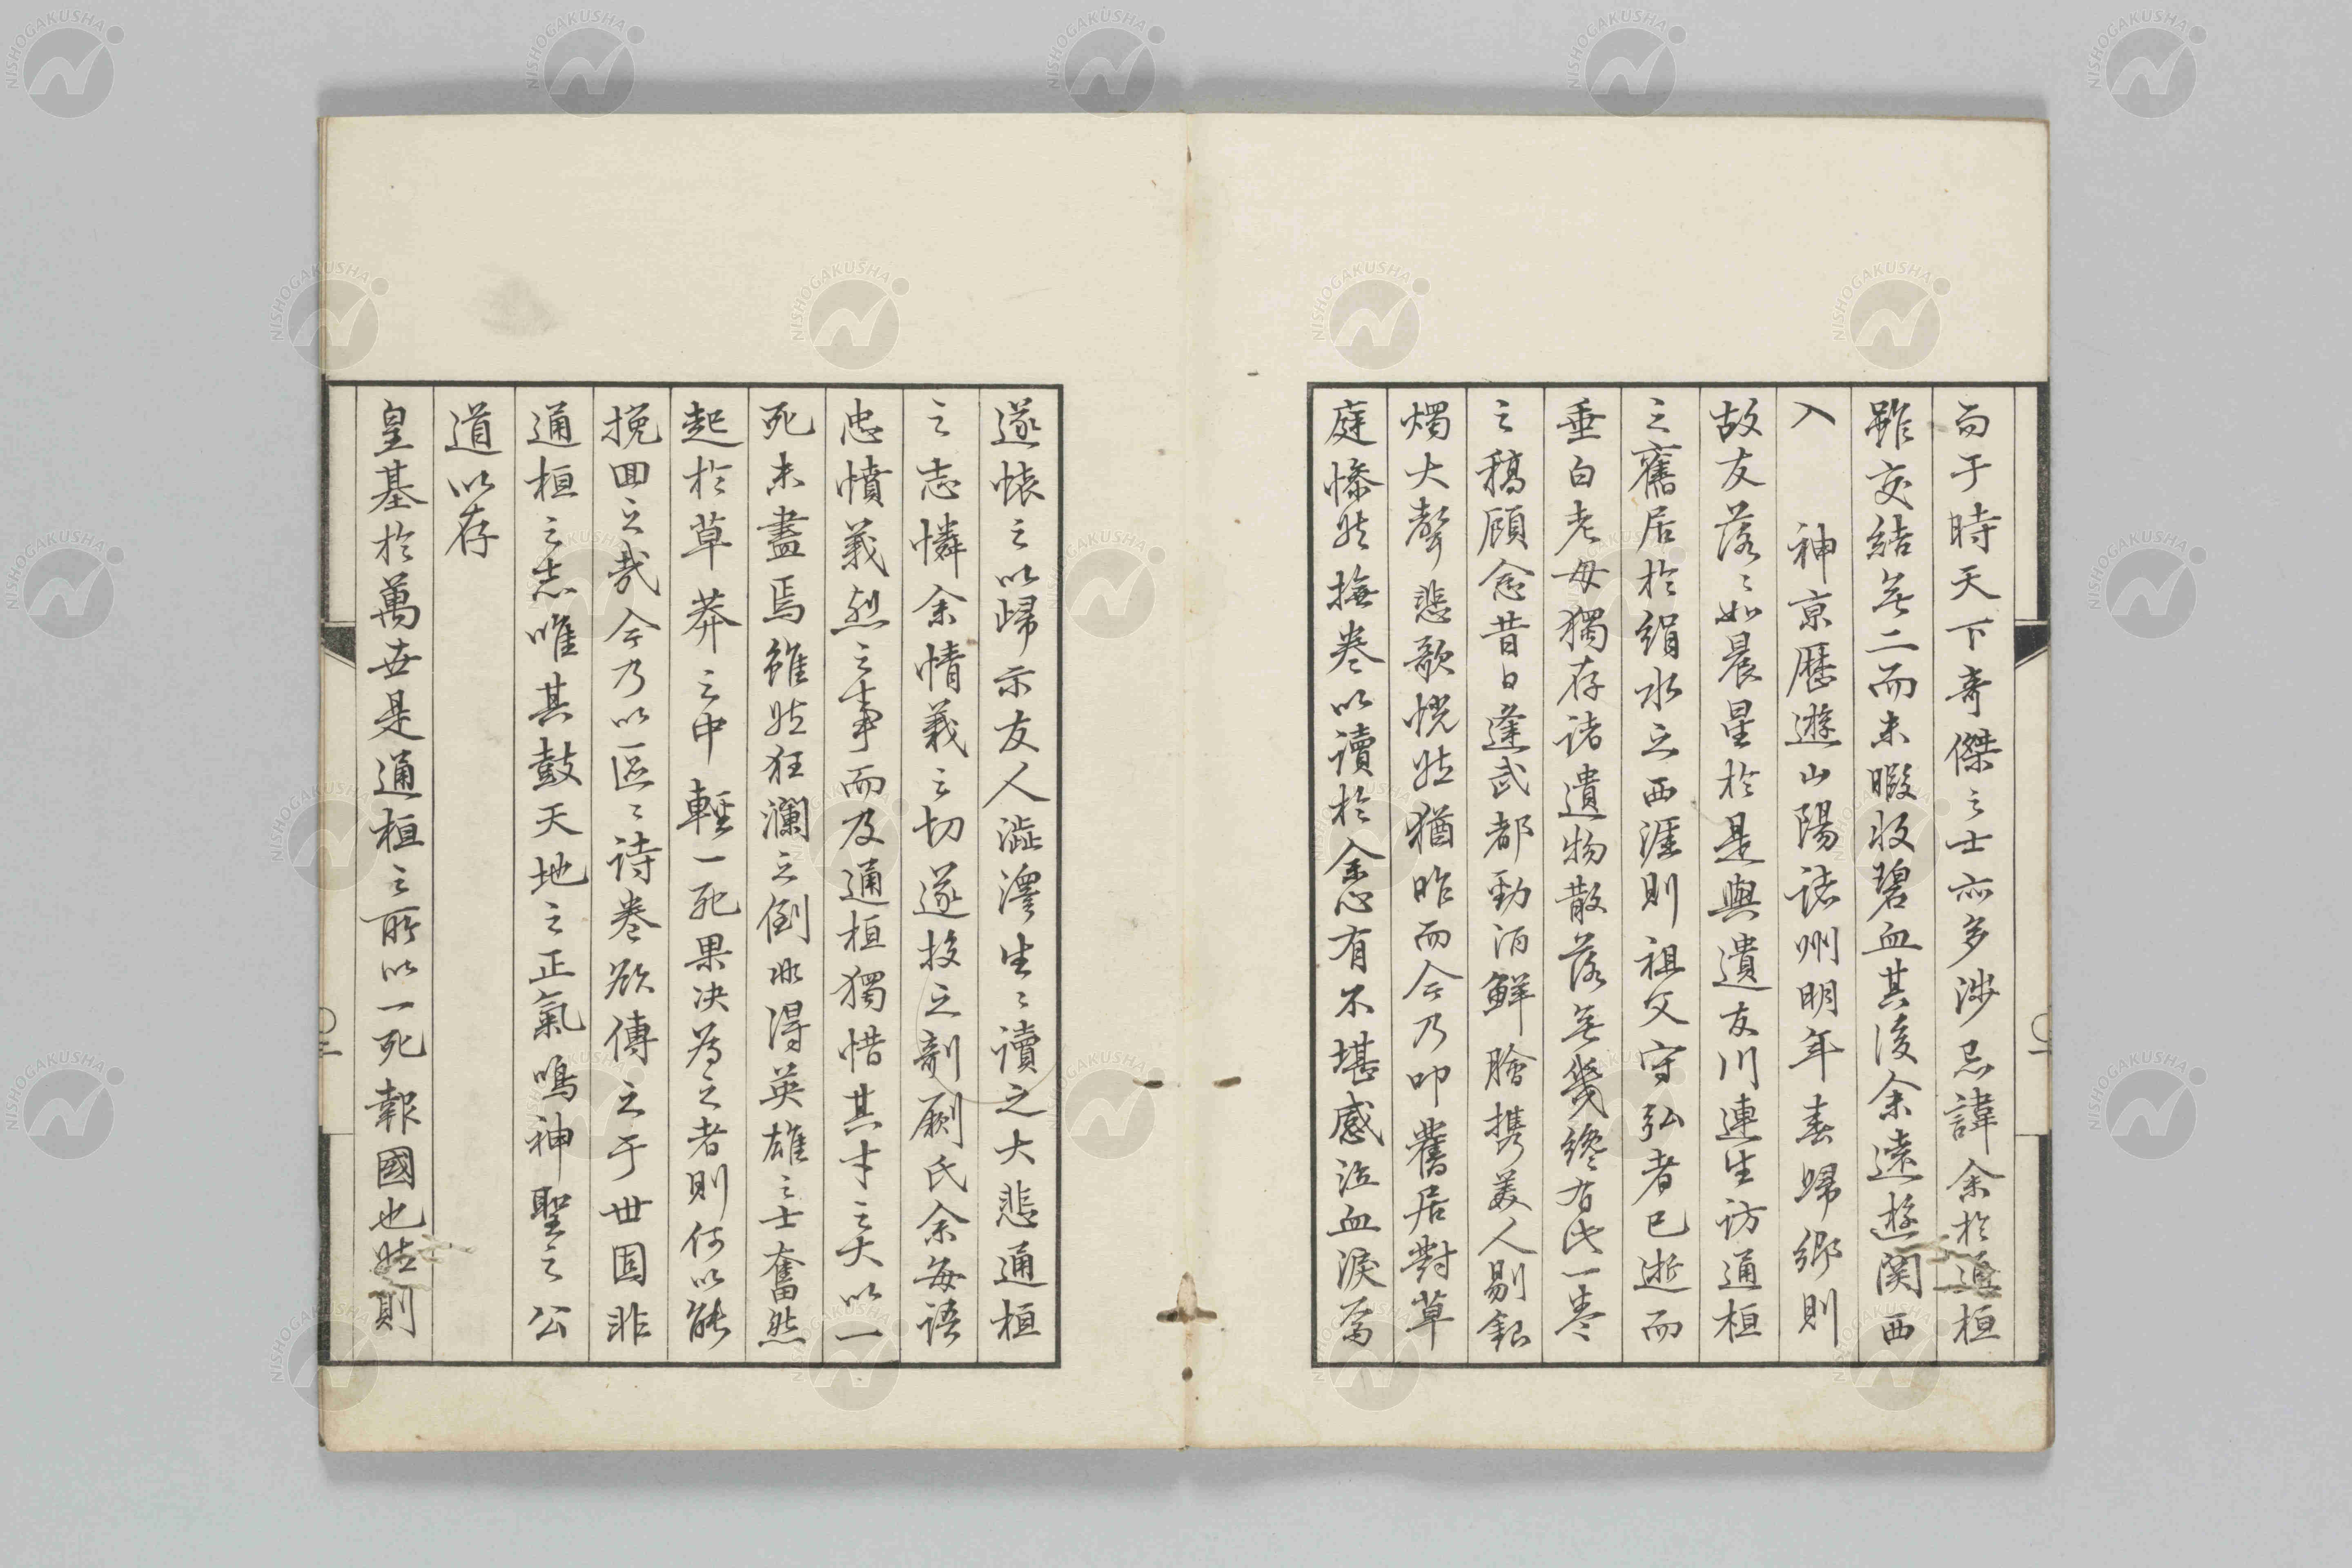 而于時天下奇傑之士亦多渉忌諱余於通桓
雖交結無二而未暇收碧血其後余遠遊関西
入　神京歷遊山陽諸州明年春歸鄉則
故友落〻如晨星於是與遺友川連生訪通桓
之舊居於絹水之西涯則祖父守弘者已逝而
垂白老母獨存諸遺物散落無幾纔有此一巻
之稿顧念昔日逢武都勁酒鮮膾携美人剔銀
燭大聲悲歌恍然猶昨而今乃叩舊居對草
庭慘然撫巻以讀於余心有不堪感泣血涙焉
遂懐之以歸示友人澁澤生〻讀之大悲通桓
之志憐余情義之切遂投之剞劂氏余每語
忠憤義烈之事而及通桓獨惜其才之大以一
死未盡焉雖然狂瀾之倒非得英雄之士奮然
起於草莽之中輕一死果決為之者則何以能
挽回之哉今乃以區〻詩巻欲傳之于世固非
通桓之志唯其鼓天地之正氣鳴神聖之公
道以存
皇基於萬世是通桓之所以一死報國也然則